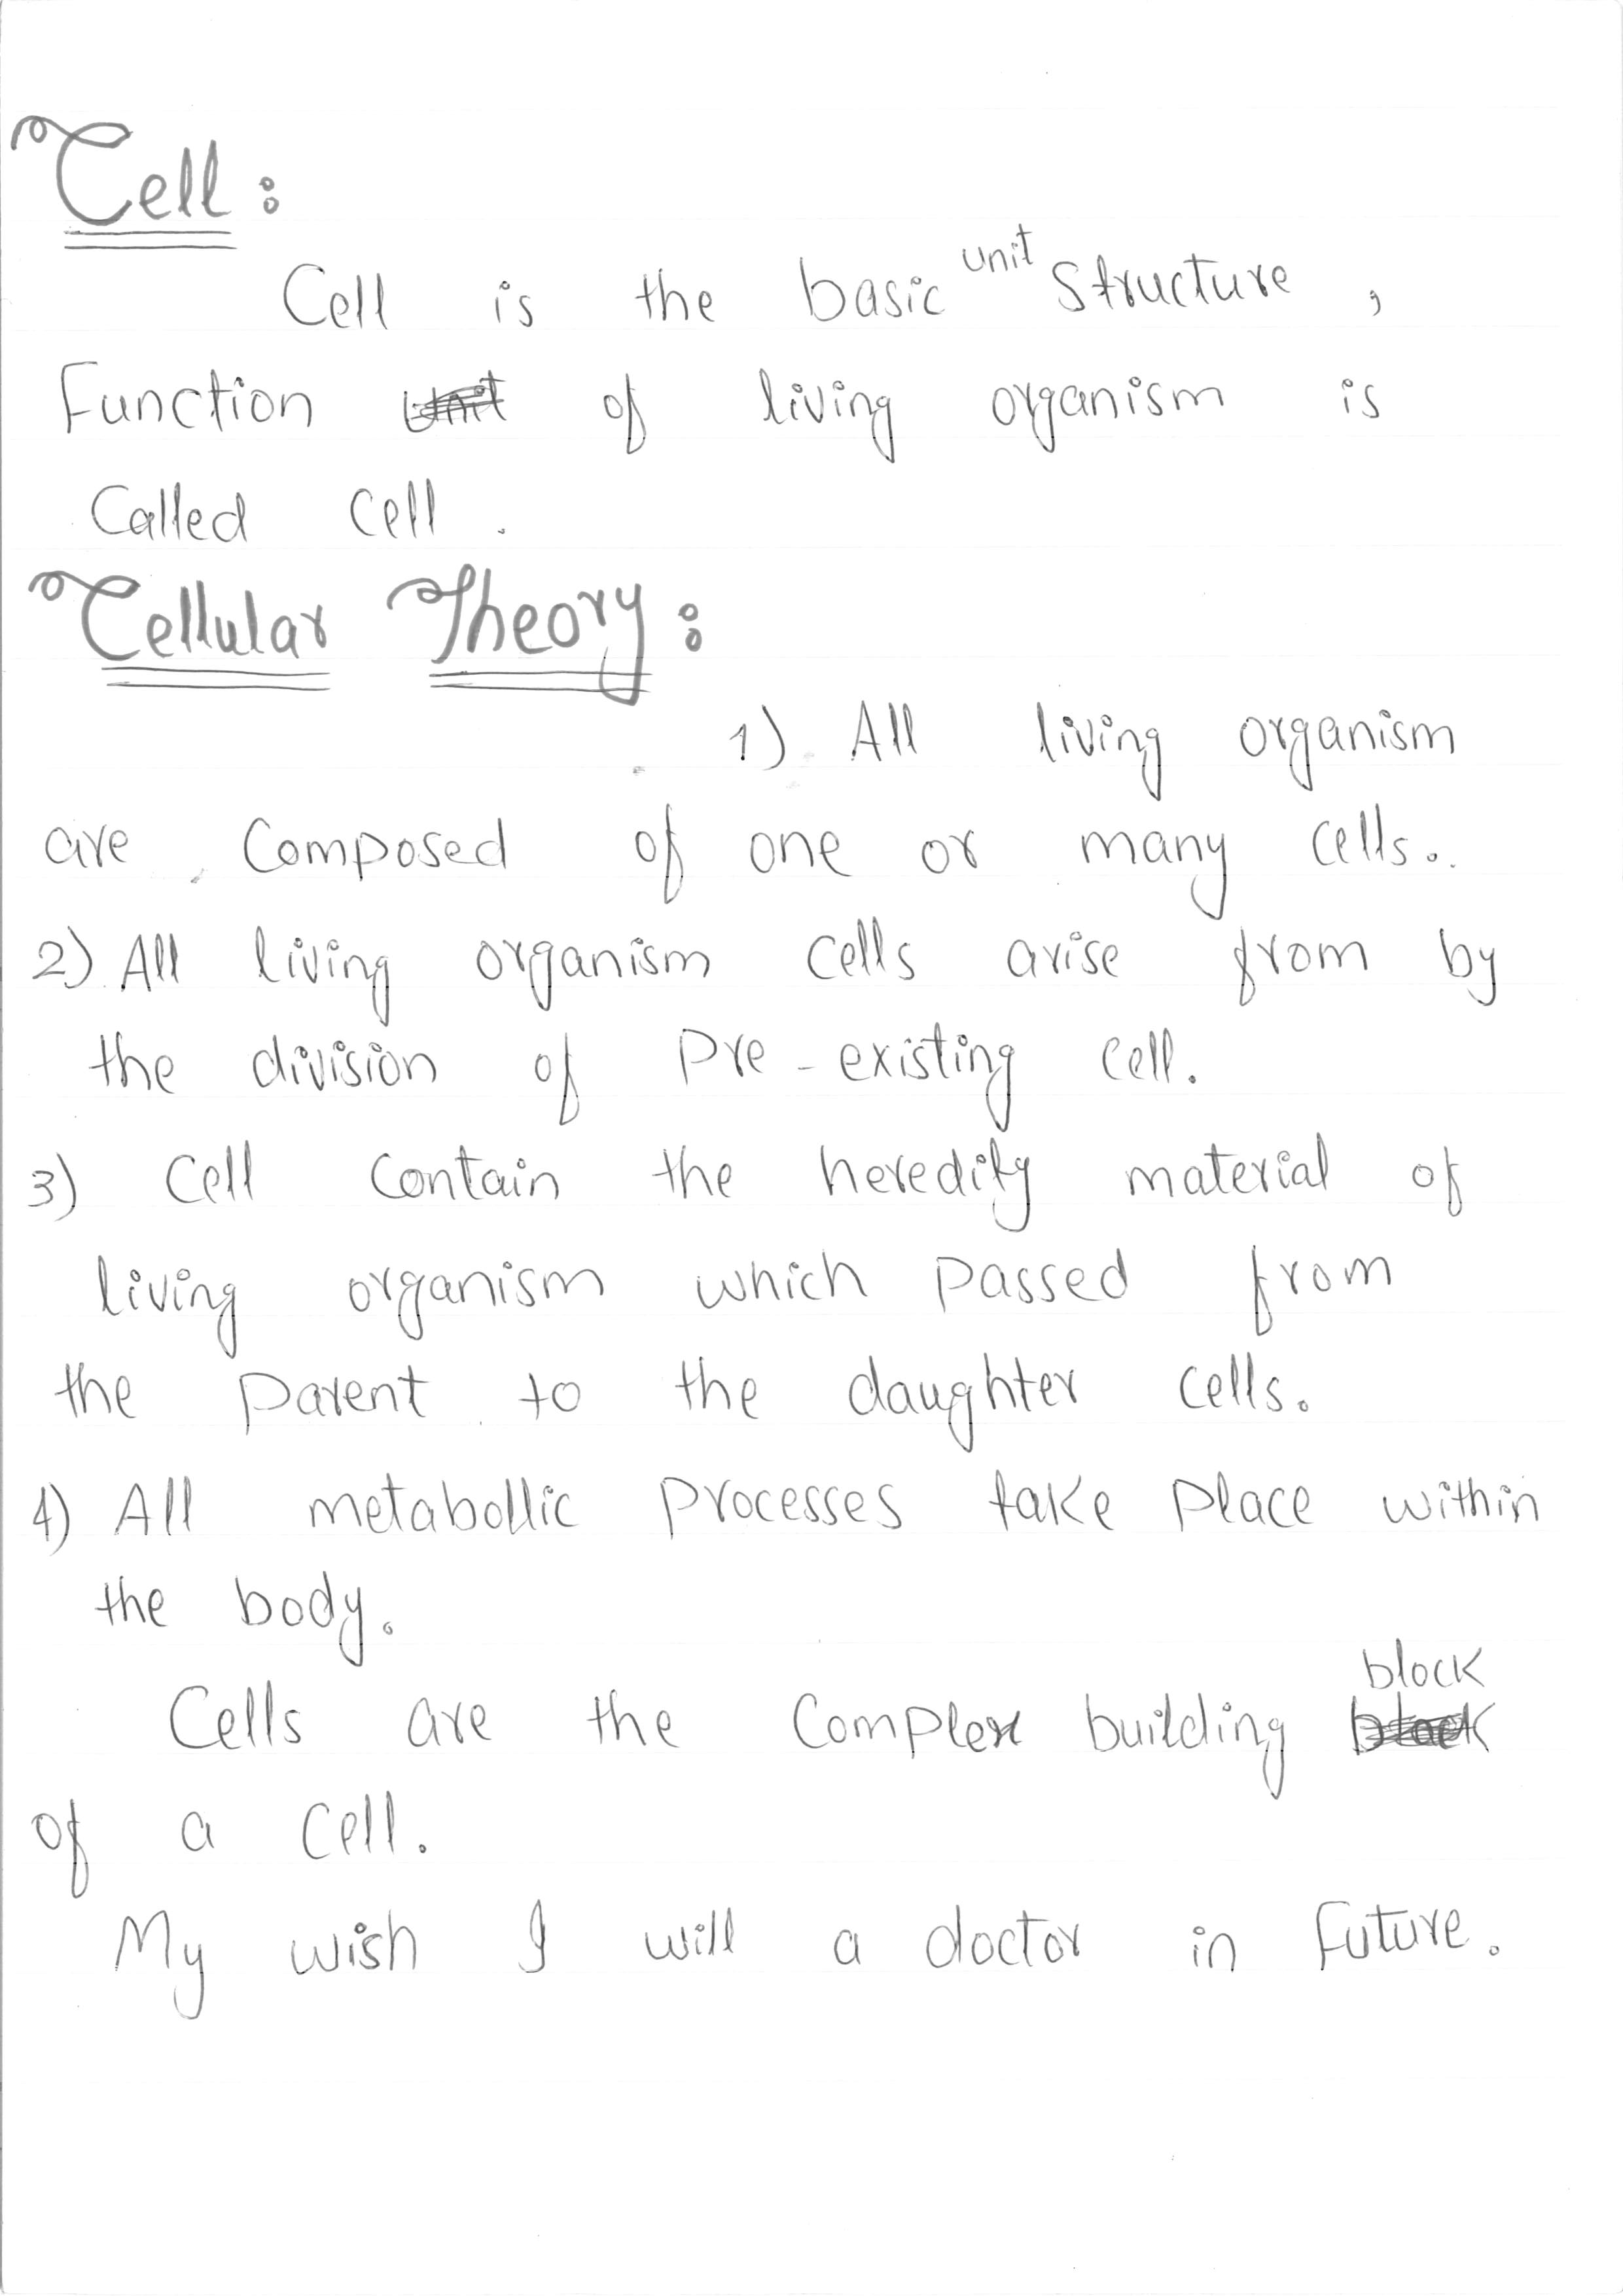 Cell:
Cell is the basic unit Structure,
Function of living organism is
Called Cell.
Cellular Theory:
1) All living organism
are Composed of one or many Cells.
2) All living organism Cells arise from by
the division of Pre-existing Cell.
3) Cell Contain the heredity material of
living organism which Passed from
the Parent to the daughter Cells.
4) All metabollic Processes take Place within
the body.
Cells are the Complex building block
of a Cell.
My wish I will a doctor in Future.